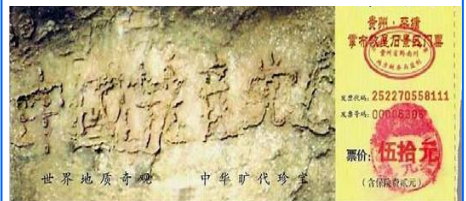 中国共产党
世界地质奇观 中华旷代珍宝
贵州·平塘
掌布救星石景区门票
发票代码: 252270558111
发票号码: 00006306
票价: 伍拾元
(含保险费贰元)